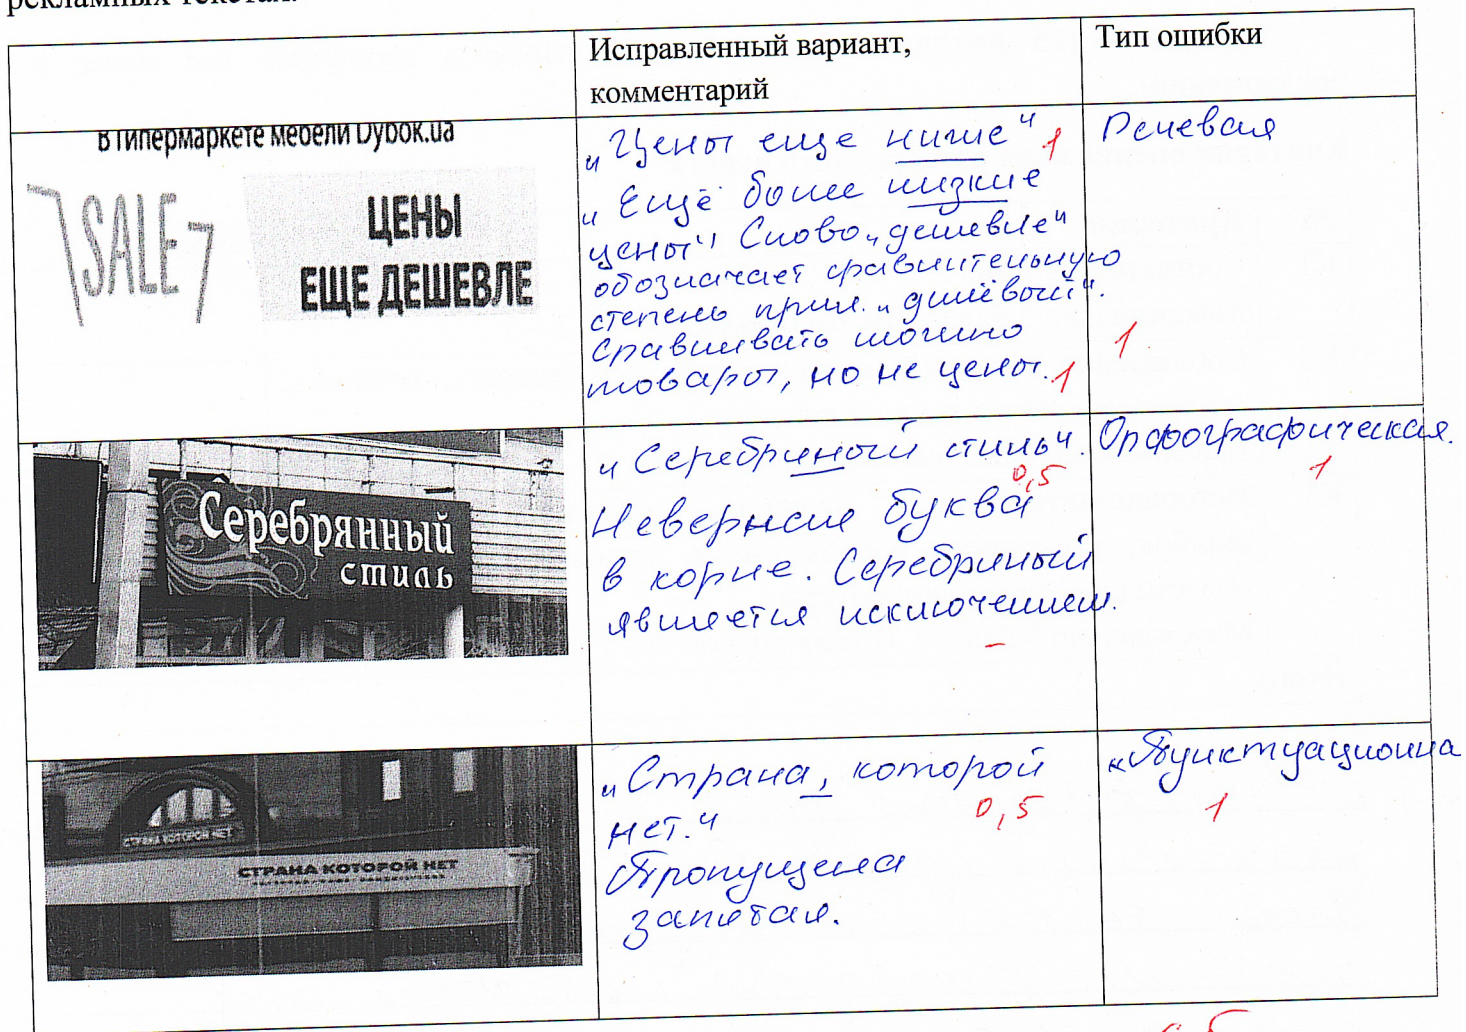 рекламных текстах.
Исправленный вариант,
комментарий
Тип ошибки
В гипермаркете мебели Dybok.ua
SALE
ЦЕНЫ
ЕЩЕ ДЕШЕВЛЕ
„Цены еще ниже“ 1
„Ещё более низкие
цены“ Слово „дешевле“
обозначает сравнительную
степень прил. „дишёвый“.
Сравнивать можно
товары, но не цены. 1
Речевая
1
Серебрянный
стиль
„Серебряный стиль“.
0,5
Неверная буква
в корне. Серебряный
является исключением.
–
Орфографическая.
1
СТРАНА КОТОРОЙ НЕТ
СТРАНА КОТОРОЙ НЕТ
„Страна, которой
нет.“
0,5
Пропущена
запятая.
«Пунктуационна
1